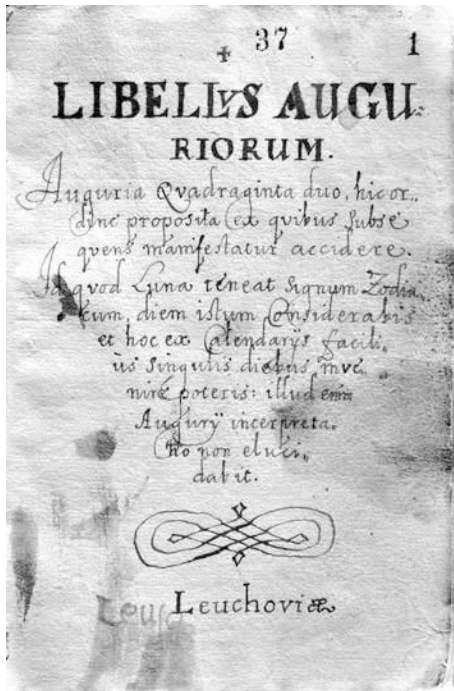 37 1
LIBELLVS AUGU-
RIORUM.
Auguria Qvadraginta duo, hic or-
dine proposita ex qvibus subse
qvens manifestatur accidere.
Id qvod Luna teneat signum Zodia,
cum, diem istum Considerabis
et hoc ex Calendarijs facili
us singulis diebus, inve
nire poteris: illud enim
Augurÿ interpreta-
tio non eluci-
dabit.
Leuchoviæ